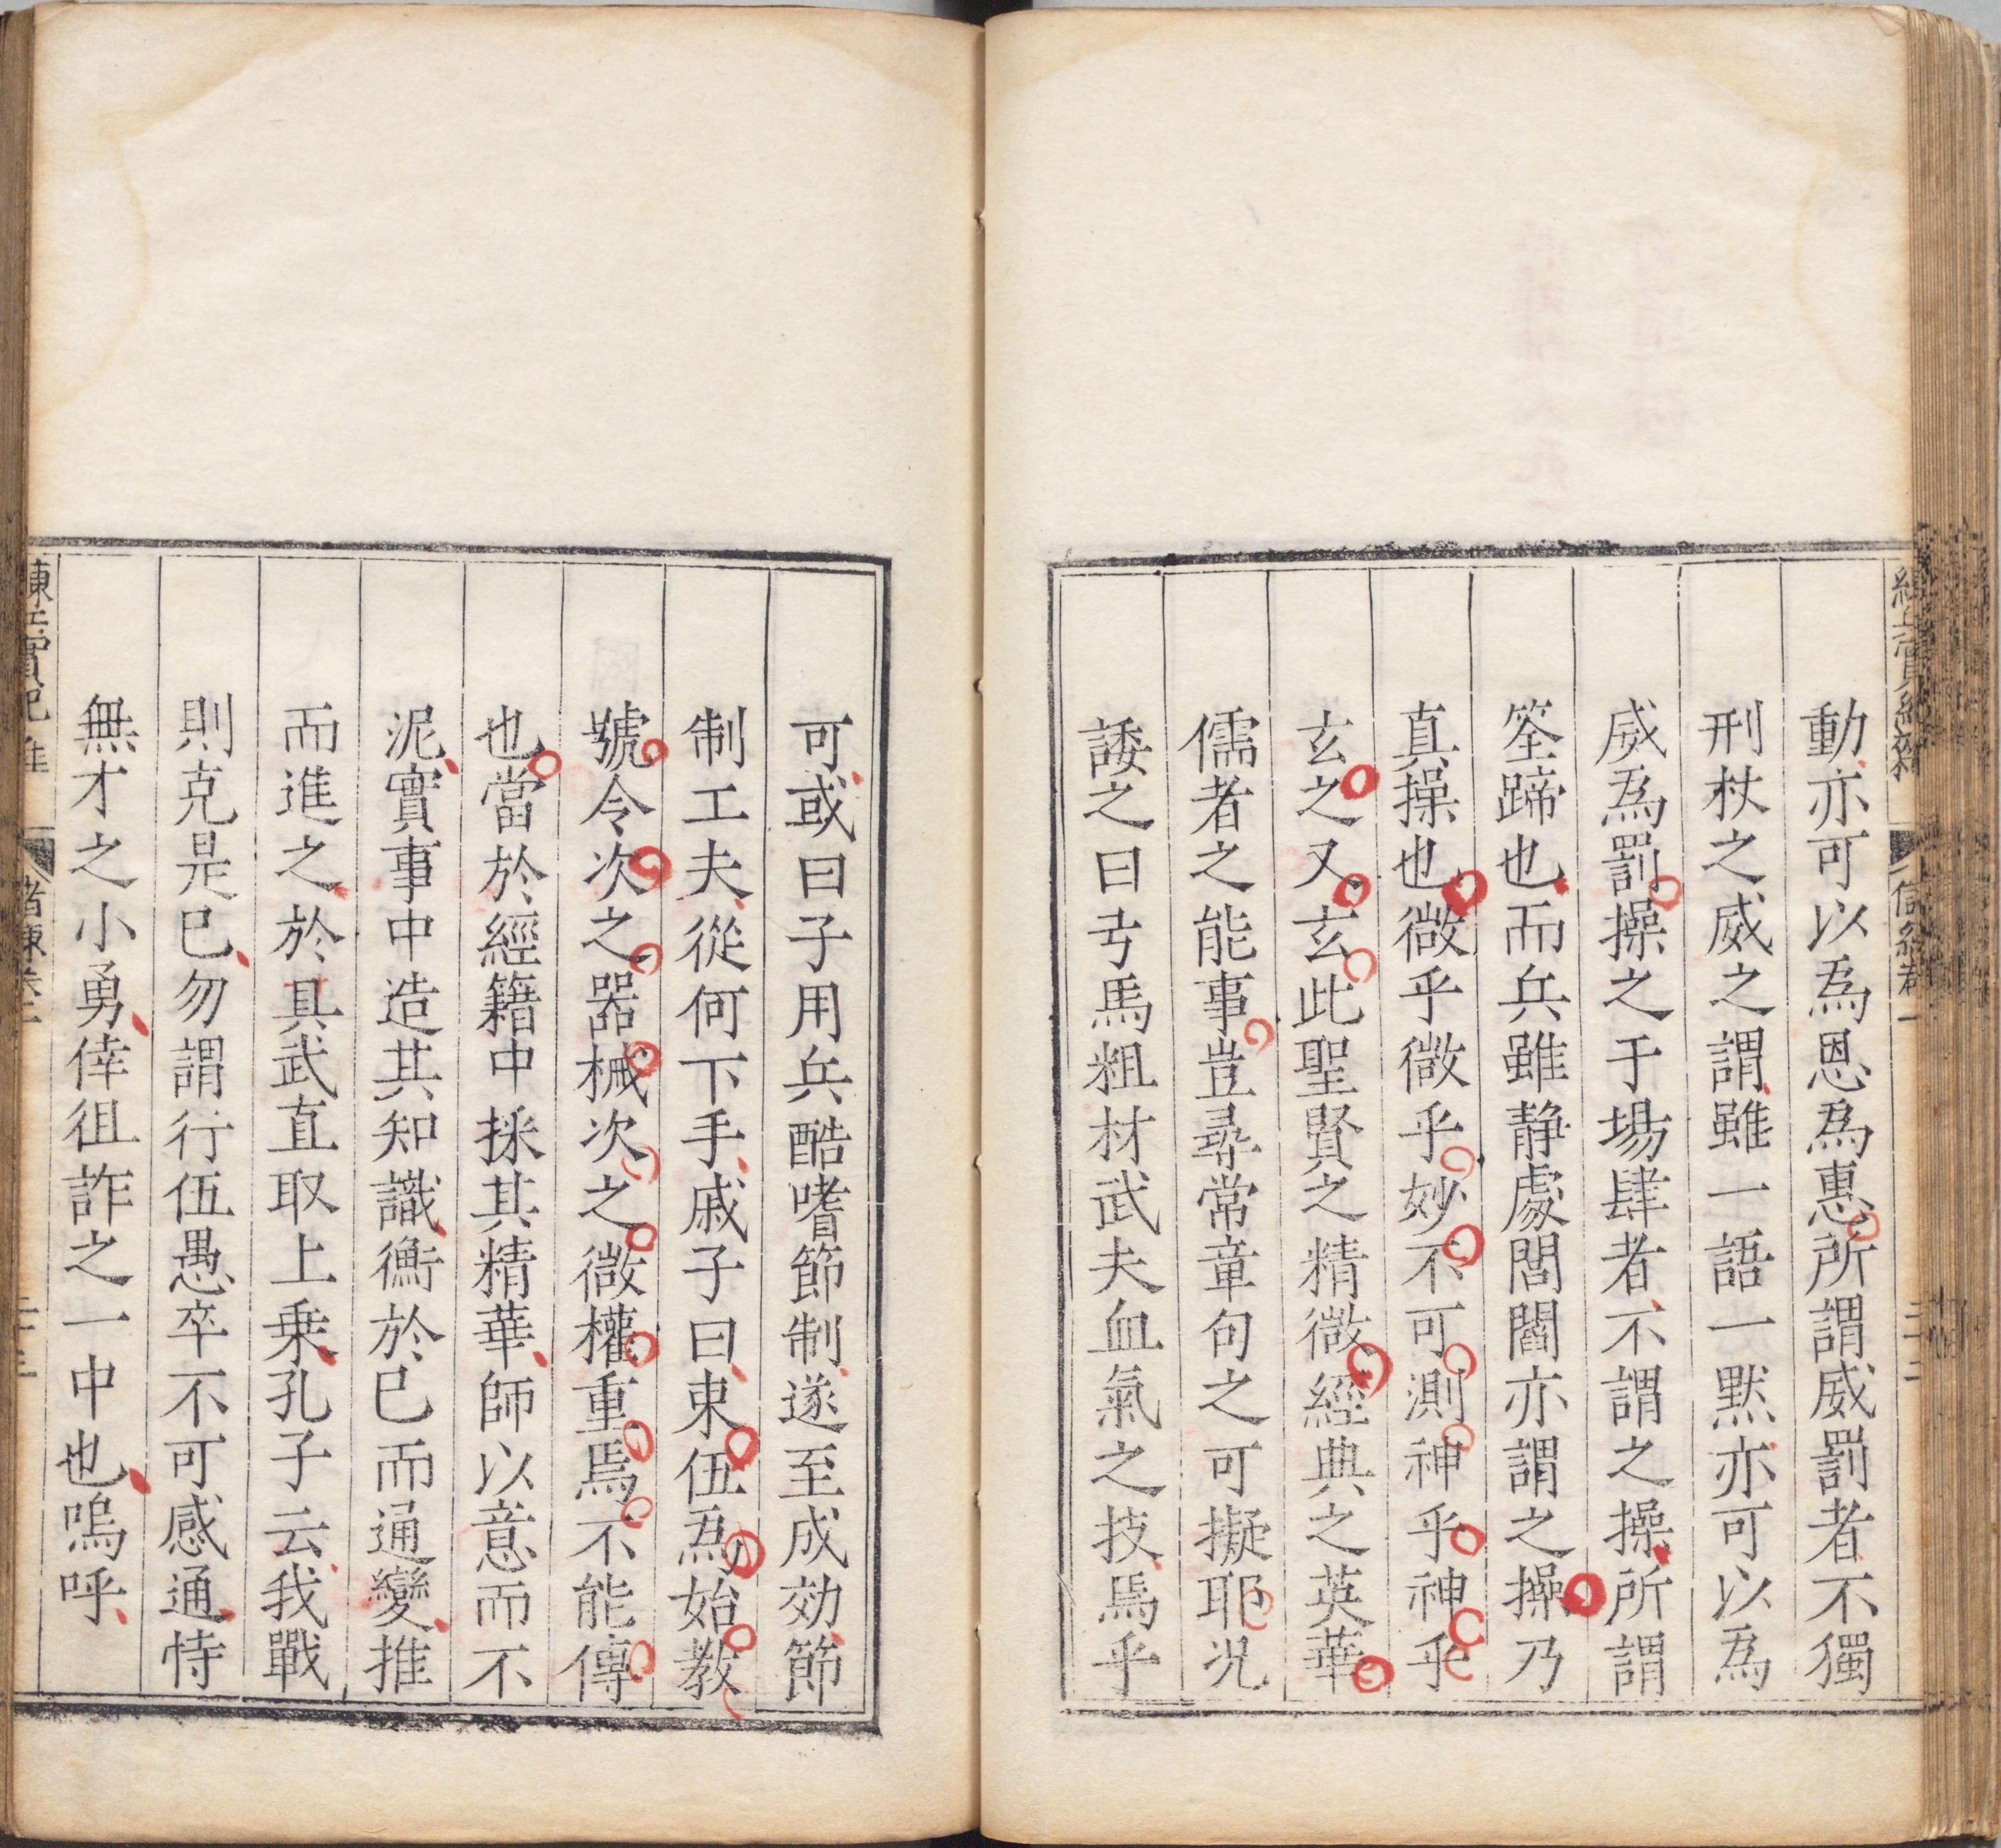 動亦可以為恩為惠所謂威罰者不獨
刑杖之威之謂雖一語一默亦可以為
威為罰操之于場肆者不謂之操所謂
筌蹄也而兵雖静處閭閻亦謂之操乃
真操也微乎微乎妙不可測神乎神乎
玄之又玄此聖賢之精微經典之英華
儒者之能事豈尋常章句之可擬耶况
諉之曰弓馬粗材武夫血氣之技焉乎
可或曰子用兵酷嗜節制遂至成効節
制工夫從何下手戚子曰束伍為始教
號令次之器械次之微權重焉不能傳
也當於經籍中採其精華師以意而不
泥實事中造其知識衡於已而通變推
而進之於具武直取上乗孔子云我戰
則克是已勿謂行伍愚卒不可感通恃
無才之小勇倖徂詐之一中也嗚呼